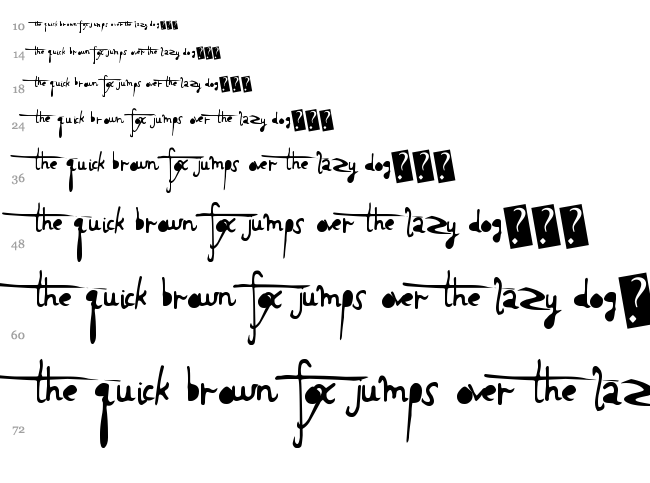 10 the quick brown fox jumps over the lazy dog???
14 the quick brown fox jumps over the lazy dog???
18 the quick brown fox jumps over the lazy dog???
24 the quick brown fox jumps over the lazy dog???
36 the quick brown fox jumps over the lazy dog???
48 the quick brown fox jumps over the lazy dog???
60 the quick brown fox jumps over the lazy dog?
72 the quick brown fox jumps over the laz